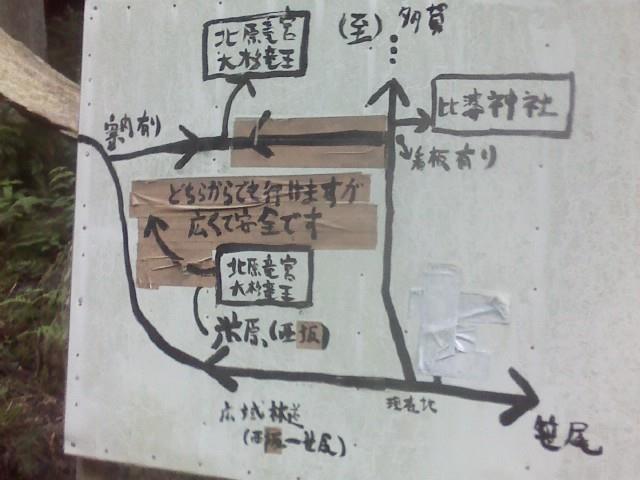 (至) 多賀
北原竜宮
大杉竜王
比婆神社
案内有り
看板有り
どちらからでも行けますが
広くて安全です
北原竜宮
大杉竜王
米原(西坂)
現在地
広域林道
(西坂ー笹尾)
笹尾